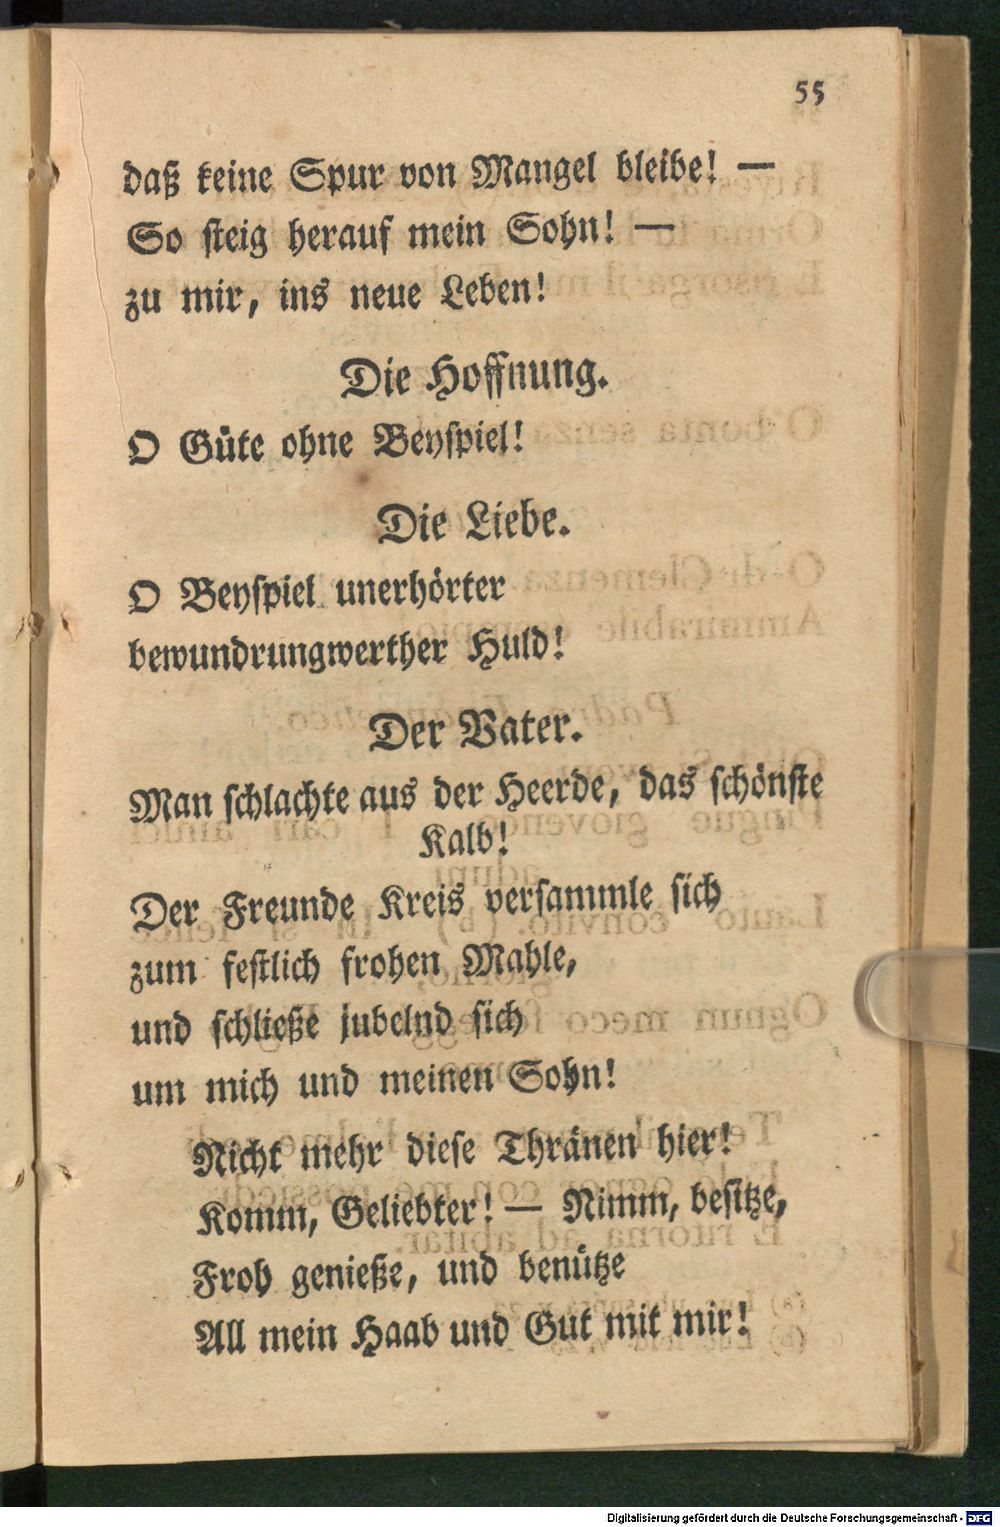 55
daß keine Spur von Mangel bleibe! —
So steig herauf mein Sohn! —
zu mir, ins neue Leben!
Die Hoffnung.
O Güte ohne Beyspiel!
Die Liebe.
O Beyspiel unerhörter
bewundrungwerther Huld!
Der Vater.
Man schlachte aus der Heerde, das schönste
Kalb!
Der Freunde Kreis versammle sich
zum festlich frohen Mahle,
und schließe jubelnd sich
um mich und meinen Sohn!
Nicht mehr diese Thränen hier!
Komm, Geliebter! — Nimm, besitze,
Froh genieße, und benütze
All mein Haab und Gut mit mir!
Digitalisierung gefördert durch die Deutsche Forschungsgemeinschaft - DFG